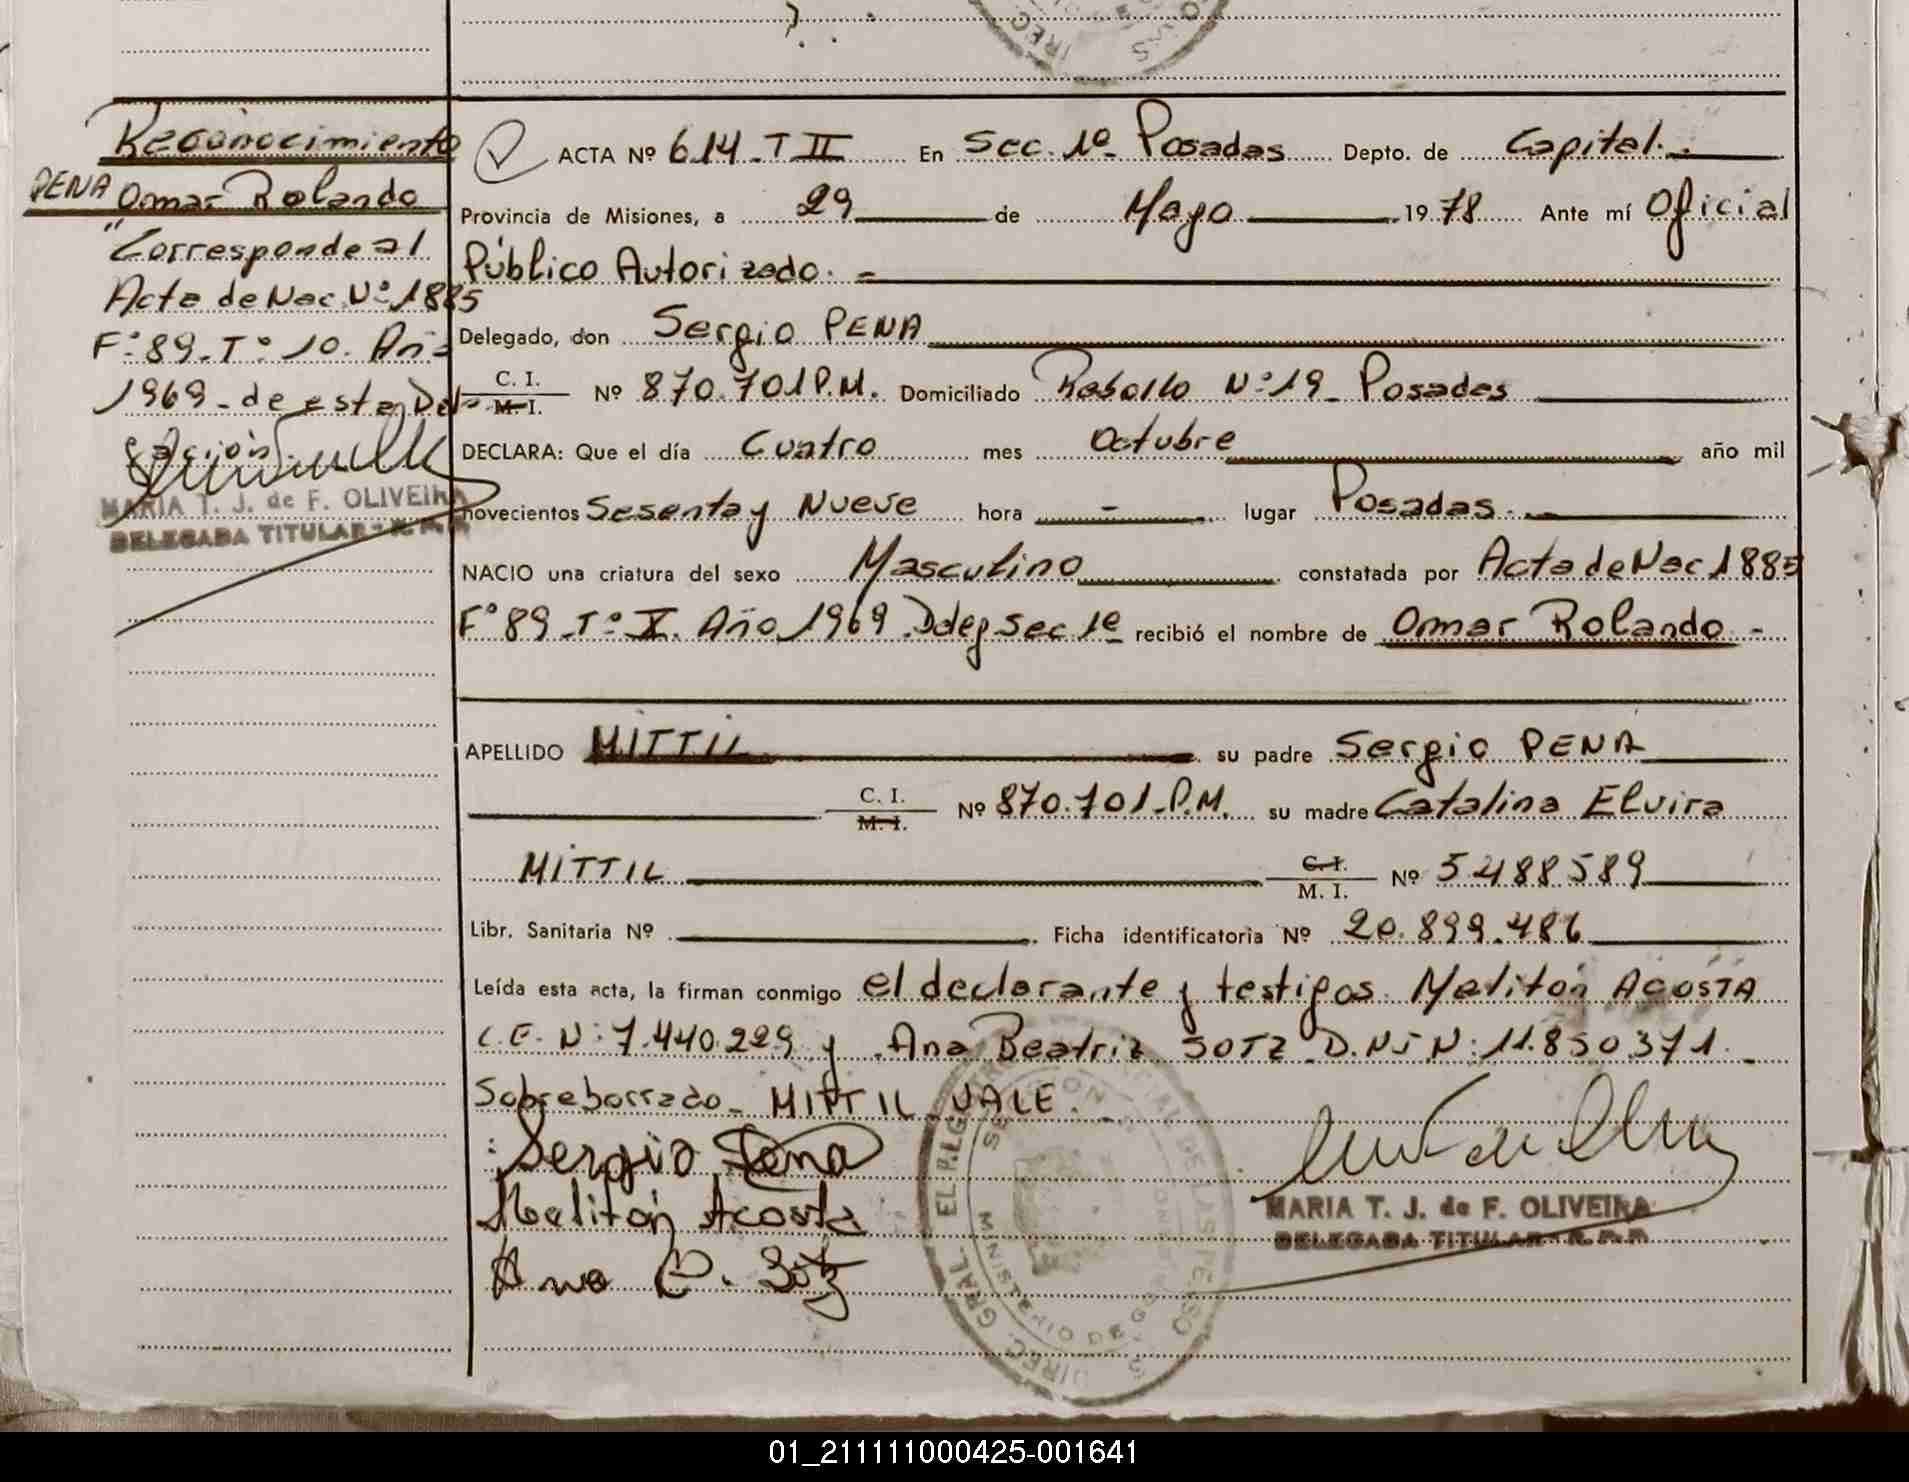 Reconocimiento
PENA Omar Rolando
"Corresponde al
Acta de Nac. Nº 1885
Fº 89. Tº 10. Año
1969 - de esta Del-
egación.
MARIA T. J. de F. OLIVEIRA
DELEGADA TITULAR - R. P. P.
ACTA Nº 614. T II En Sec. 1º Posadas Depto. de Capital.
Provincia de Misiones, a 29 de Mayo 1978 Ante mí Oficial
Público Autorizado. -
Delegado, don Sergio PENA
C. I. M. I. Nº 870.701 P.M. Domiciliado Nº 19 - Posadas
DECLARA: Que el día Cuatro mes Octubre año mil
novecientos Sesenta y Nueve hora - lugar Posadas. -
NACIO una criatura del sexo Masculino constatada por Acta de Nac 1885
Fº 89 Tº X. Año 1969 Sec 1ª recibió el nombre de Omar Rolando -
APELLIDO MITTIL su padre Sergio PENA
C. I. M. I. Nº 870.701 - P.M. su madre Catalina Elvira
MITTIL C. I. M. I. Nº 5488589
Libr. Sanitaria Nº Ficha identificatoria Nº 20.899.486
Leída esta acta, la firman conmigo el declarante y testigos. Melitón ACOSTA
L.E. Nº 7.440.229 y Ana Beatriz SOTZ D.N.I Nº 11.850371. -
Sobreborrado - MITTIL - VALE.
Sergio Pena
Melitón Acosta
Ana B. Sotz
MARIA T. J. de F. OLIVEIRA
DELEGADA TITULAR - R. P. P.
01_211111000425-001641